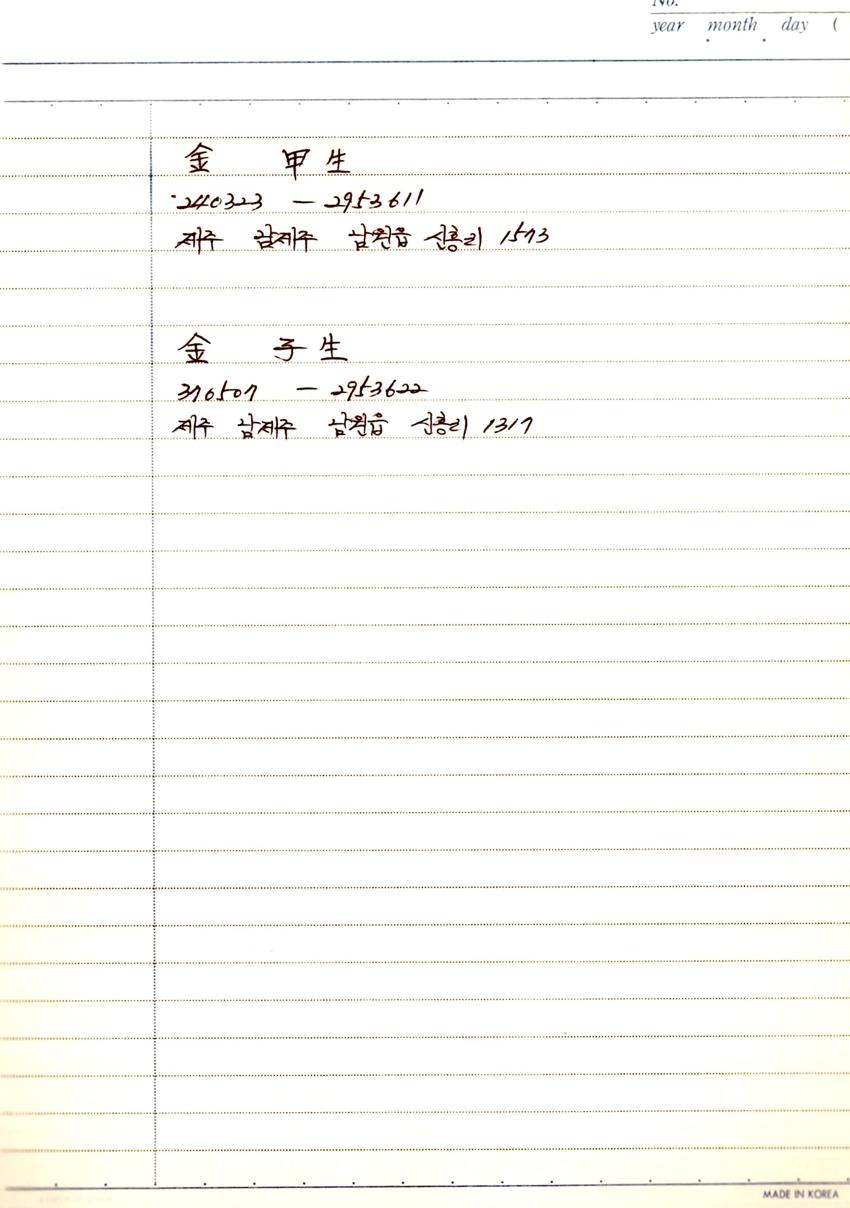 No.
year month day (
金 甲生
240323 — 2953611
제주 남제주 남원읍 신흥리 1573
金 子生
370507 — 2953622
제주 남제주 남원읍 신흥리 1317
MADE IN KOREA